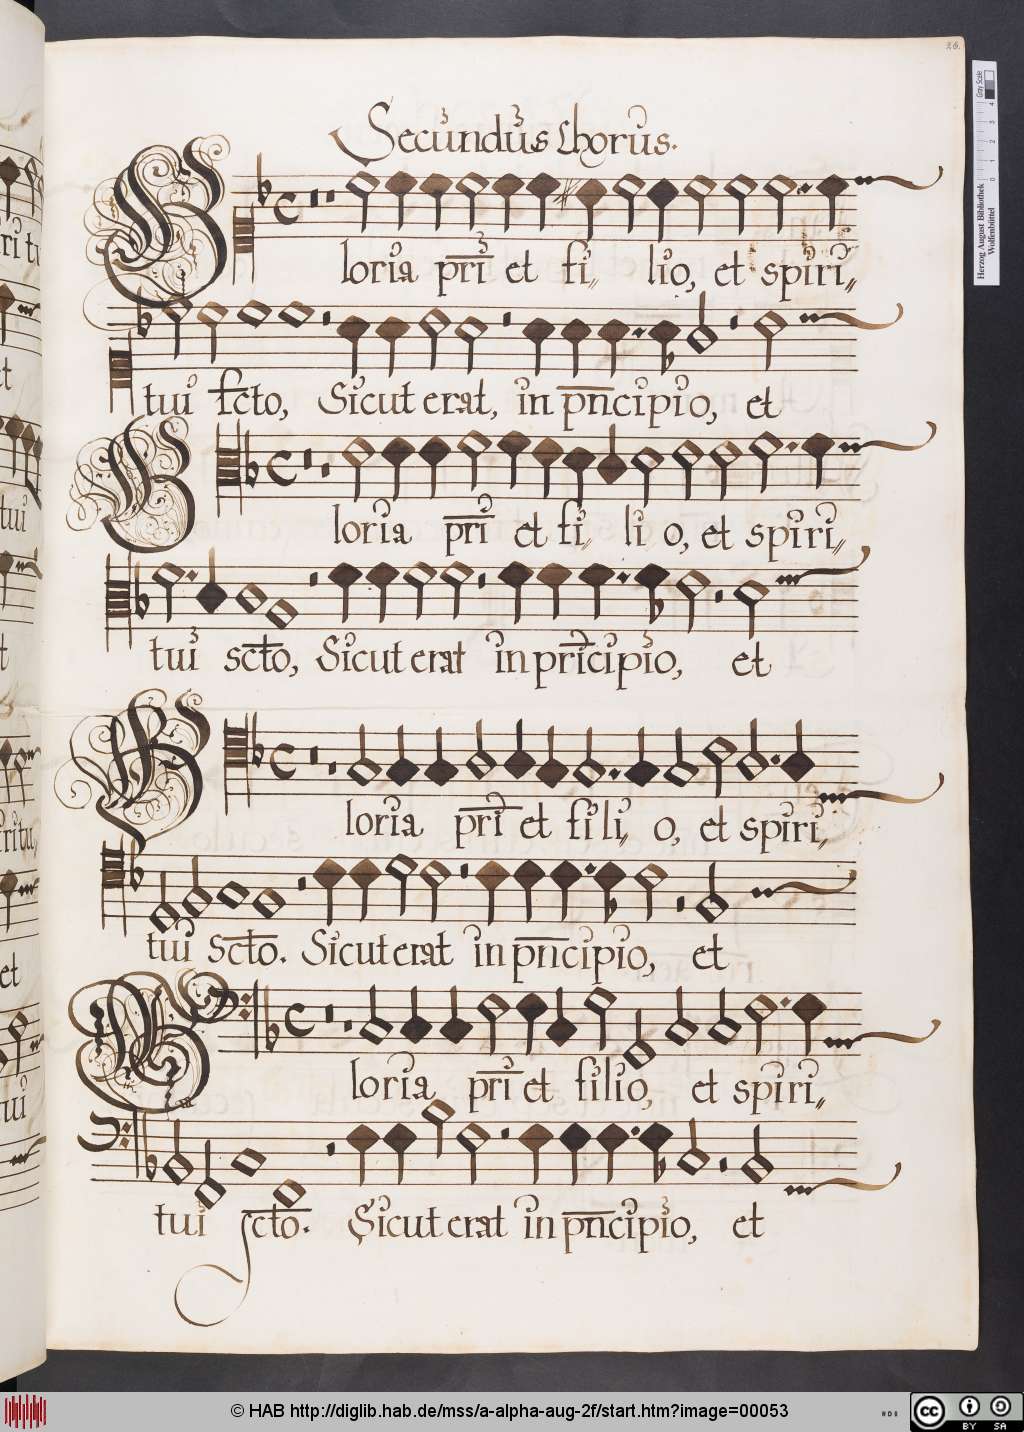 26.
Secundus Chorus.
Gloria pri et fi„ lio, et spiri„
tui scto, Sicut erat, in pncipio, et
Gloria pri et fi„ li o, et spiri„
tui scto, Sicut erat in pricipio, et
Gloria pri et fili„ o, et spiri„
tui Scto. Sicut erat in pncipio, et
Gloria pri et filio, et spiri„
tui scto. Sicut erat in pncipio, et
Gray Scale
0 1 2 3 4
Herzog August Bibliothek
Wolfenbüttel
© HAB http://diglib.hab.de/mss/a-alpha-aug-2f/start.htm?image=00053
cc BY SA